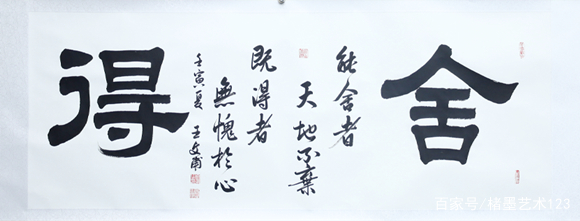 舍
能舍者
天地不棄
既得者
無愧於心
壬寅夏 王文甫
得
百家号/橘墨艺术123